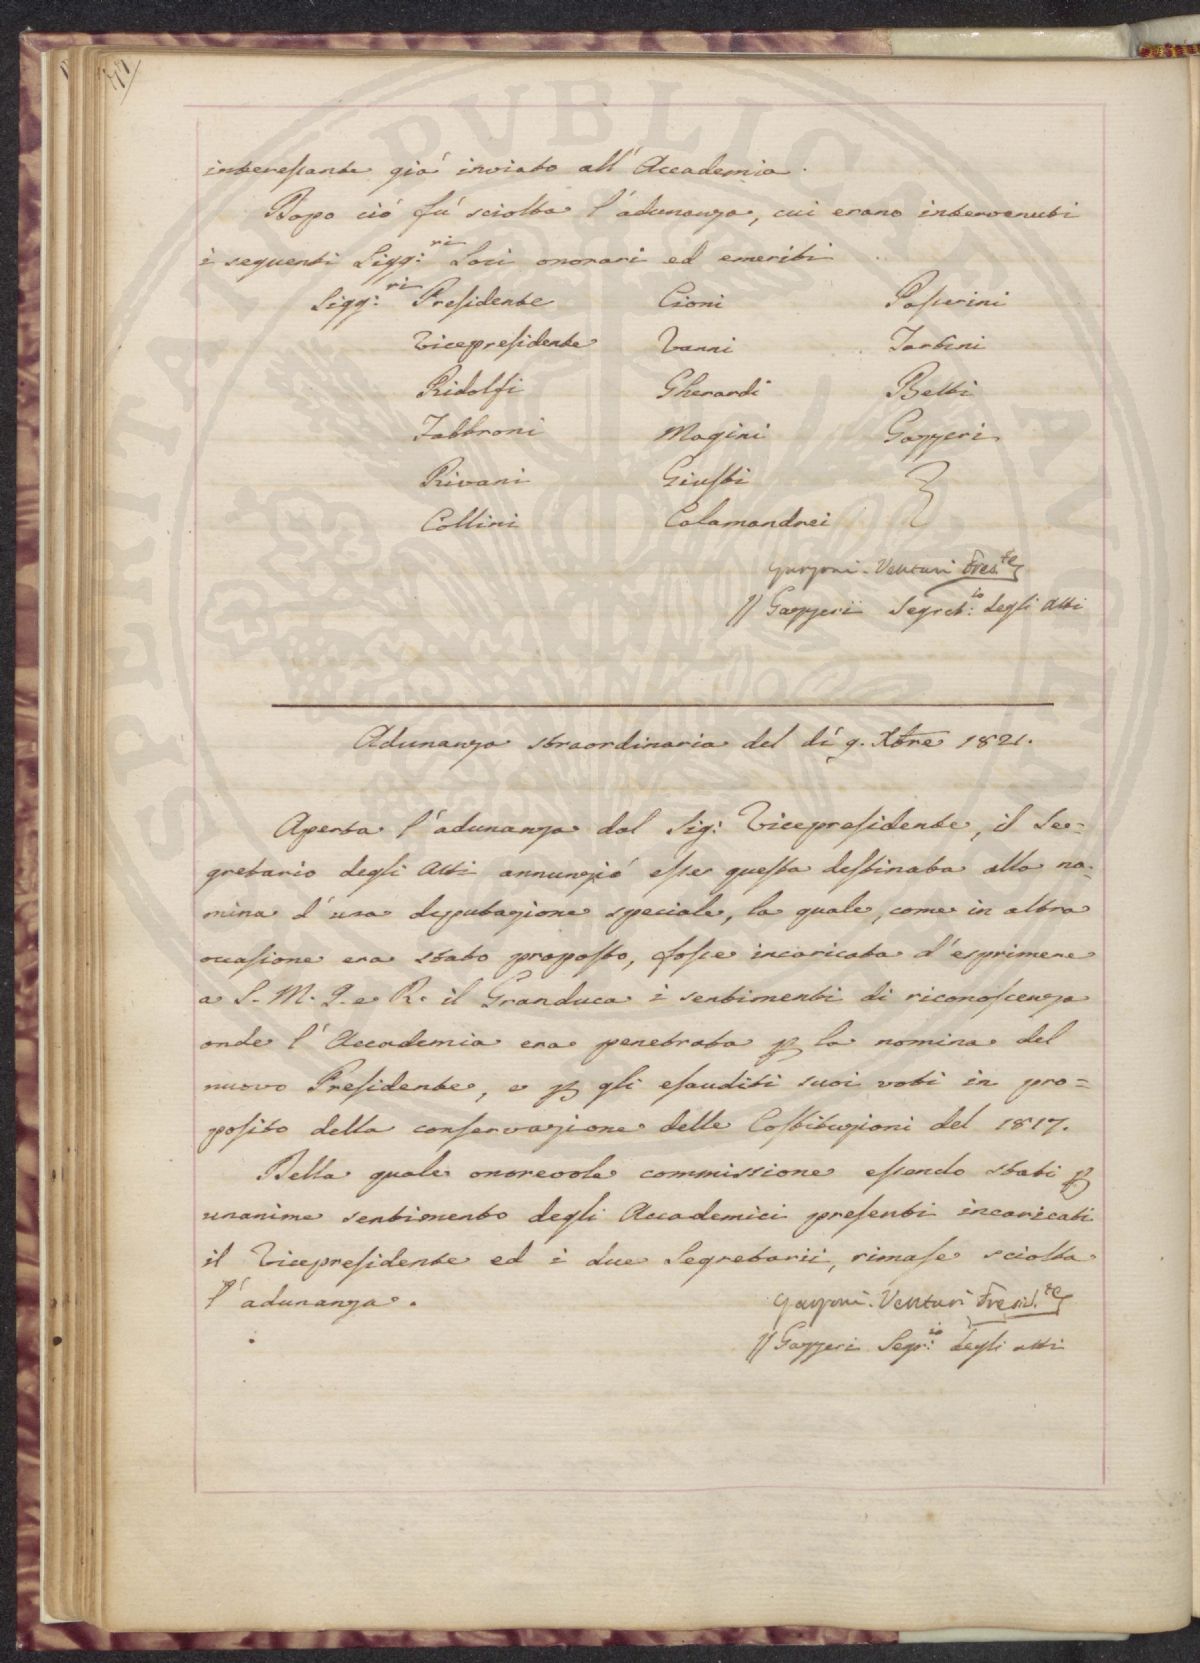 interessante già inviato all'Accademia.
Dopo ciò fù sciolta l'adunanza, cui erano intervenuti
i seguenti Sigg:ri Soci onorari ed emeriti
Sigg:ri Presidente Cioni Passerini
Vicepresidente Vanni Tartini
Ridolfi Gherardi Betti
Fabbroni Magini Gazzeri
Rivani Giusti
Collini Calamandrei
Garzoni-Venturi Pres.te
Gazzeri Segret:io degli Atti
Adunanza straordinaria del dì 9. Xbre 1821.
Aperta l'adunanza dal Sig: Vicepresidente, il Se=
gretario degli Atti annunziò esser questa destinata alla no=
mina d'una deputazione speciale, la quale, come in altra
occasione era stato proposto, fosse incaricata d'esprimere
a S. M. I. e R. il Granduca i sentimenti di riconoscenza
onde l'Accademia era penetrata p la nomina del
nuovo Presidente, e p gli esauditi suoi voti in pro=
posito della conservazione delle Costituzioni del 1817.
Della quale onorevole commissione essendo stati p
unanime sentimento degli Accademici presenti incaricati
il Vicepresidente ed i due Segretarii, rimase sciolta
l'adunanza.
Garzoni-Venturi Presid.te
Gazzeri Segr:io degli atti
SPERITAS PVBLICA AVGE